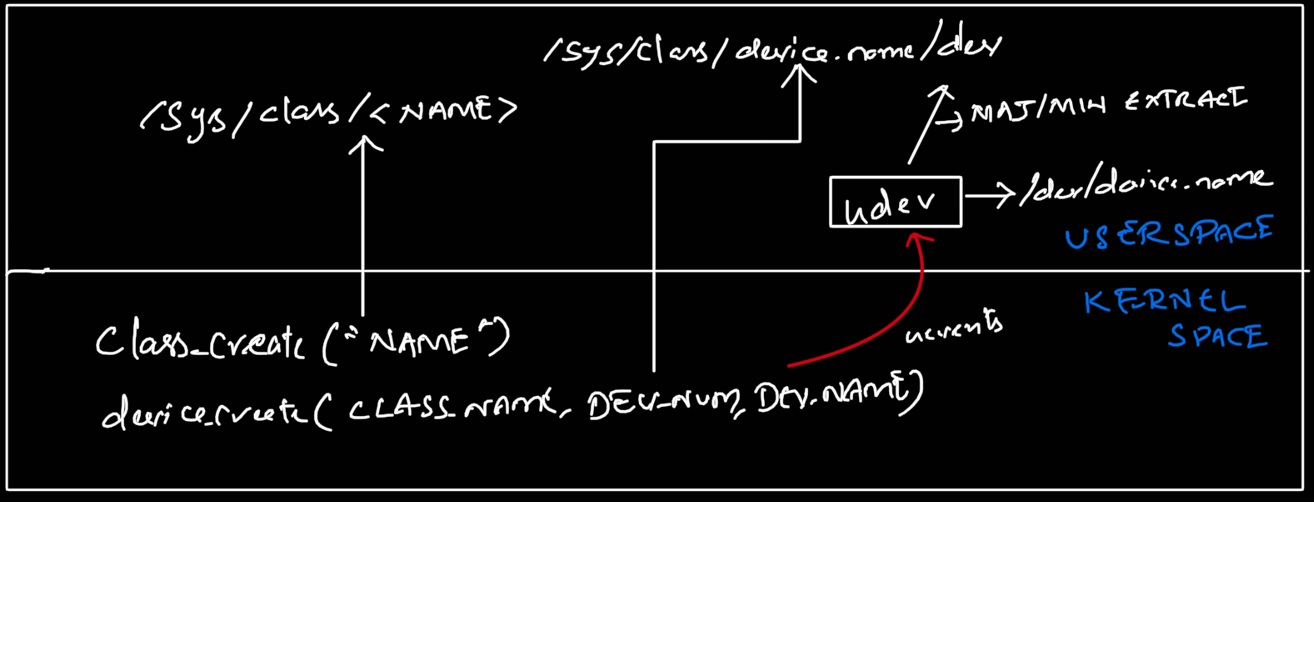 /sys/class/device.name/dev
/sys/class/<NAME>
→ MAJ/MIN EXTRACT
udev
/dev/device.name
USERSPACE
KERNEL
SPACE
uevents
class_create("NAME")
device_create(CLASS_NAME, DEV_NUM, DEV.NAME)